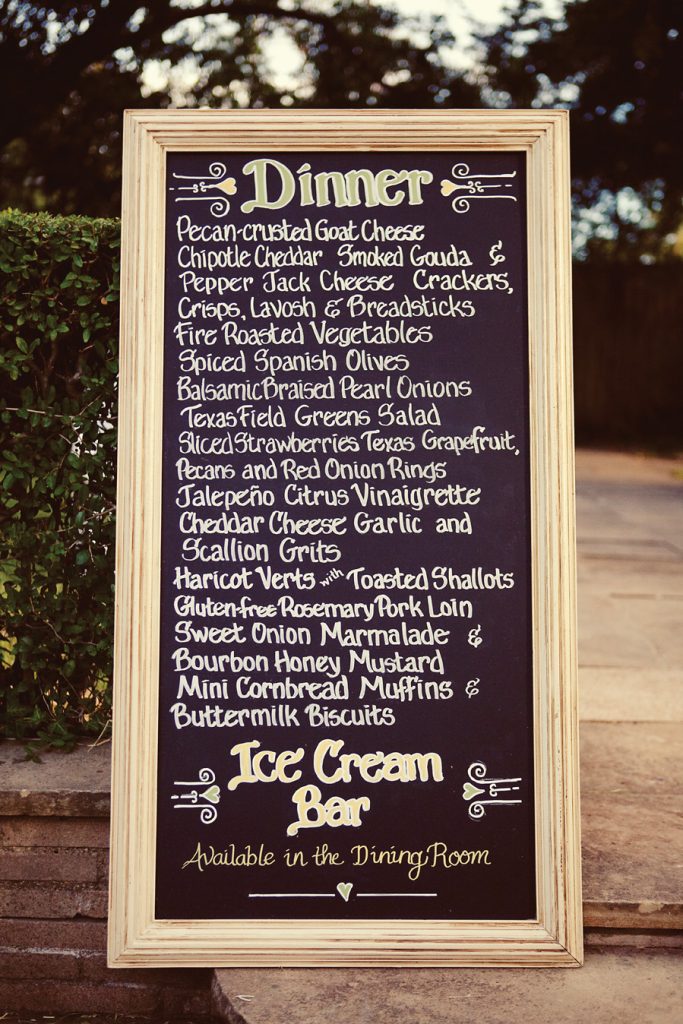 Dinner
Pecan-crusted Goat Cheese
Chipotle Cheddar Smoked Gouda &
Pepper Jack Cheese Crackers,
Crisps, Lavosh & Breadsticks
Fire Roasted Vegetables
Spiced Spanish Olives
Balsamic Braised Pearl Onions
Texas Field Greens Salad
Sliced Strawberries Texas Grapefruit,
Pecans and Red Onion Rings
Jalepeño Citrus Vinaigrette
Cheddar Cheese Garlic and
Scallion Grits
Haricot Verts with Toasted Shallots
Gluten-free Rosemary Pork Loin
Sweet Onion Marmalade &
Bourbon Honey Mustard
Mini Cornbread Muffins &
Buttermilk Biscuits
Ice Cream
Bar
Available in the Dining Room